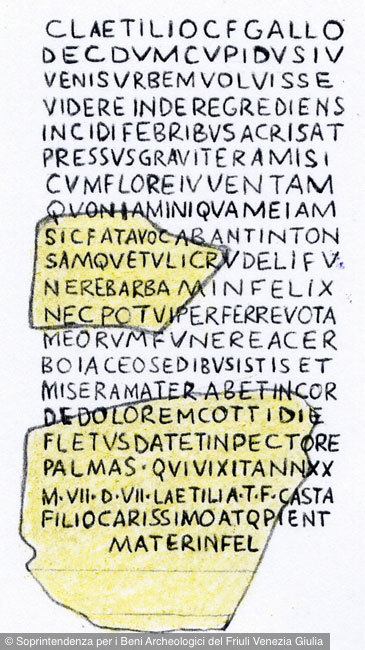 CLAETILIOCFGALLO
DECDVMCVPIDVSIV
VENISVRBEMVOLVISSE
VIDEREINDEREGREDIENS
INCIDIFEBRIBVSACRISAT
PRESSVSGRAVITERAMISI
CVMFLOREIVVENTAM
QVONIAMINIQVAMEIAM
SICFATAVOCABANTINTON
SAMQVETVLICRVDELIFV
NEREBARBAMINFELIX
NECPOTVIPERFERREVOTA
MEORVMFVNEREACER
BOIACEOSEDIBVSISTISET
MISERAMATERABETINCOR
DEDOLOREMCOTTIDIE
FLETVSDATETINPECTORE
PALMAS·QVIVIXITANNXX
M·VII·D·VII·LAETILIA·T·F·CASTA
FILIOCARISSIMOATQPIENT
MATERINFEL
© Soprintendenza per i Beni Archeologici del Friuli Venezia Giulia